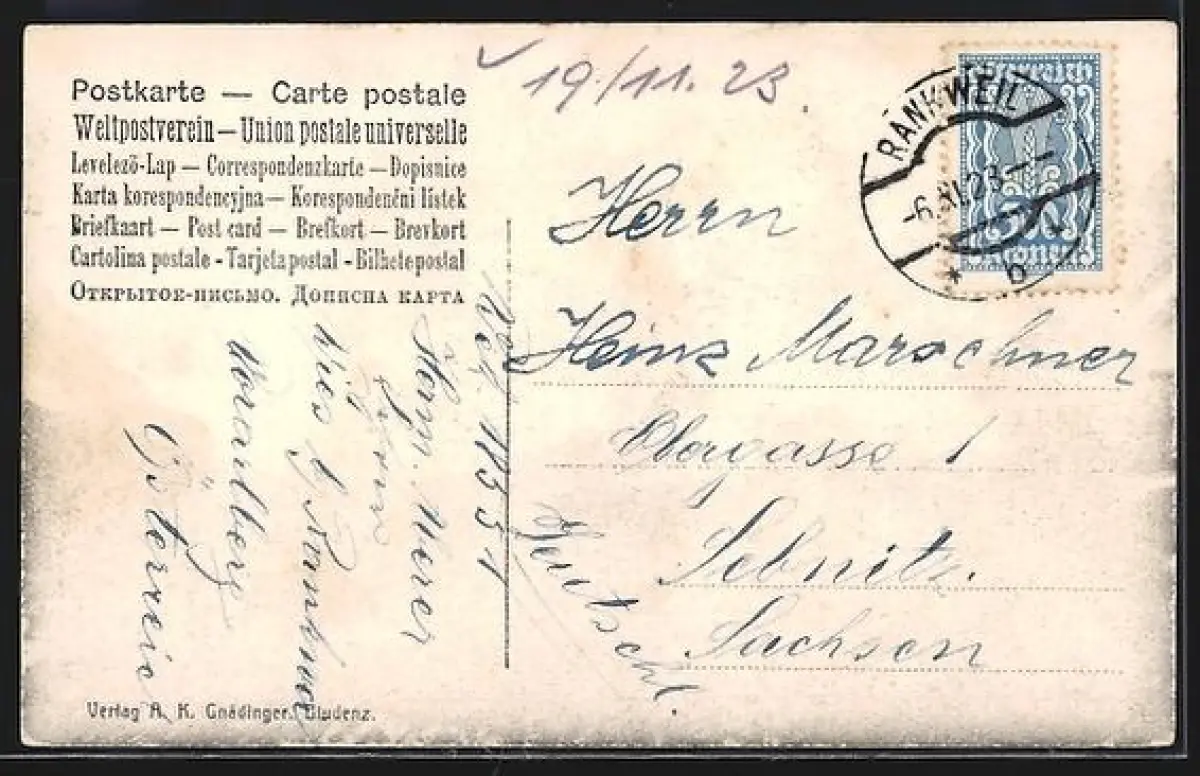 Postkarte — Carte postale
Weltpostverein — Union postale universelle
Levelező-Lap — Correspondenzkarte — Dopisnice
Karta korespondencyjna — Korespondenční lístek
Briefkaart — Post card — Brefkort — Brevkort
Cartolina postale - Tarjeta postal - Bilhete postal
Открытое-письмо. Дописна карта
19/11.23.
RANKWEIL
-6.XI.23
* b *
Herrn
Heinz Marschner
Obergasse 1
Sebnitz.
Sachsen
Deutschl.
1155 1
Vorarlberg
Verlag A. K. Gnädinger, Bludenz.